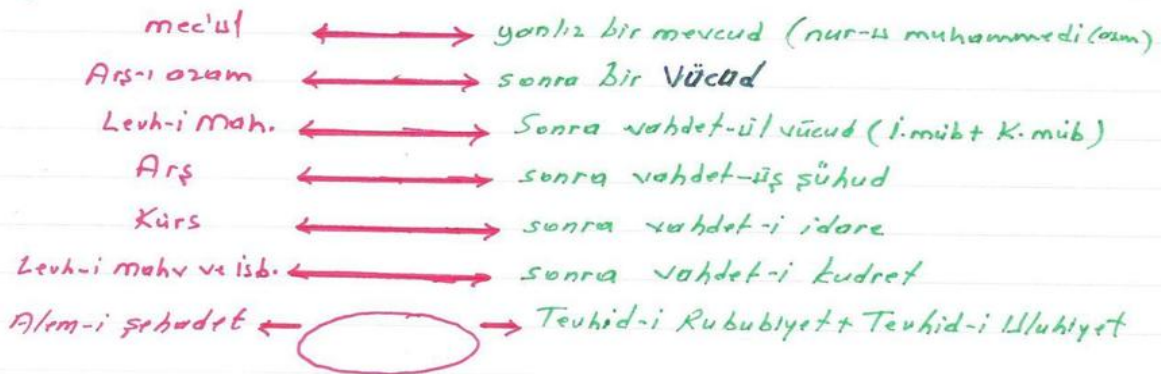 mec'ul yanlız bir mevcud (nur-u muhammedi (asm)
Arş-ı azam sonra bir Vücud
Levh-i Mah. Sonra vahdet-ül vücud (i.müb + K.müb)
Arş sonra vahdet-üş şühud
Kürs sonra vahdet-i idare
Levh-i mahv ve isb. sonra vahdet-i kudret
Alem-i şehadet Tevhid-i Rububiyet + Tevhid-i Uluhiyet